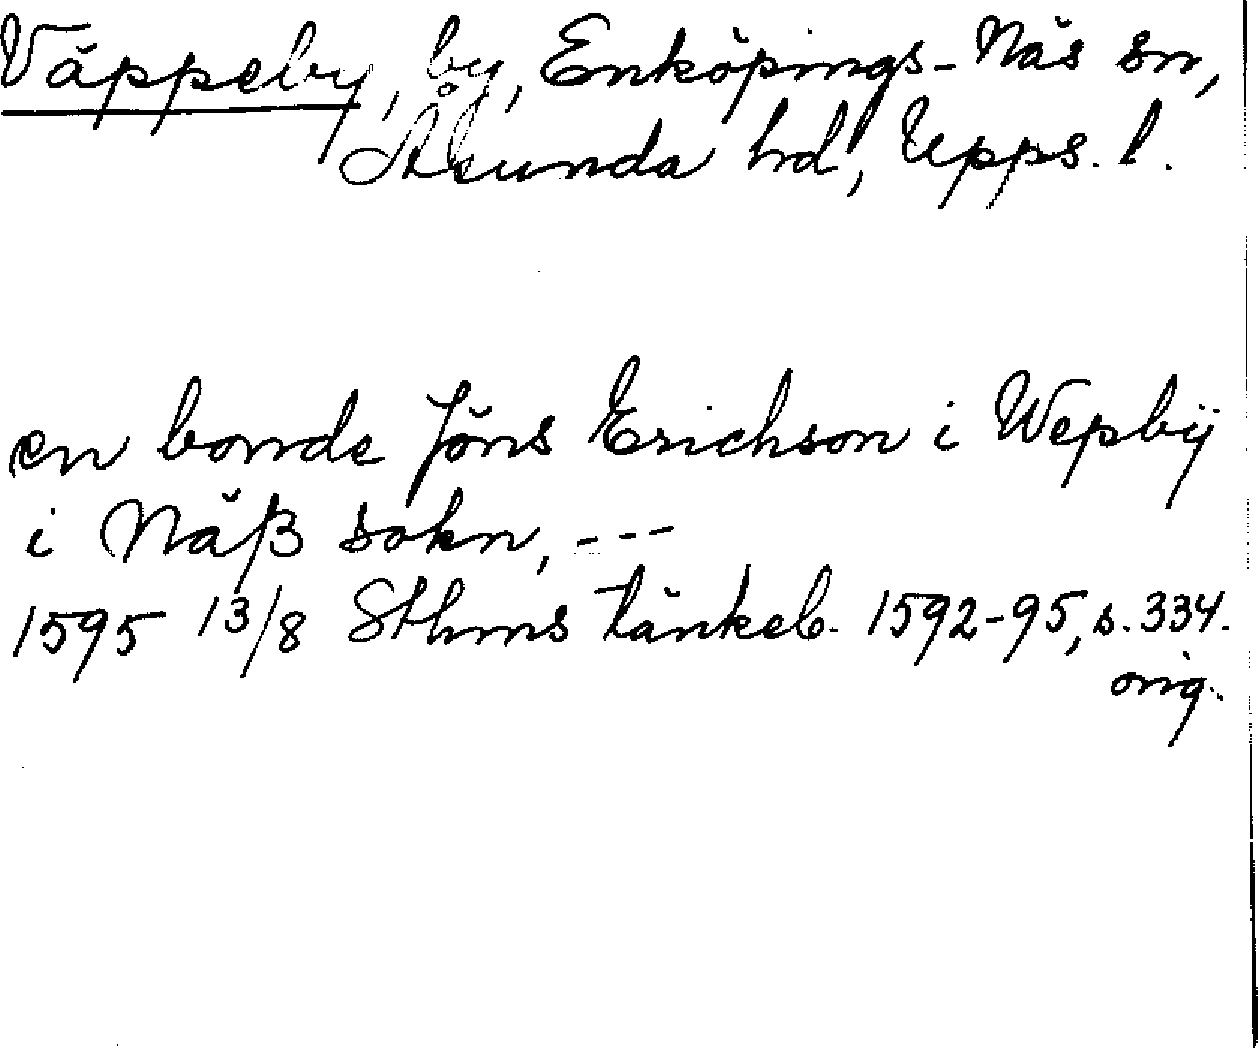 Väppeby, by, Enköpings-Näs sn,
Åsunda hrd, Upps. l.
en bonde Jöns Erichson i Wepbÿ
i Näß sokn, ---
1595 13/8 Sthms tänkeb. 1592-95, s. 334.
orig.